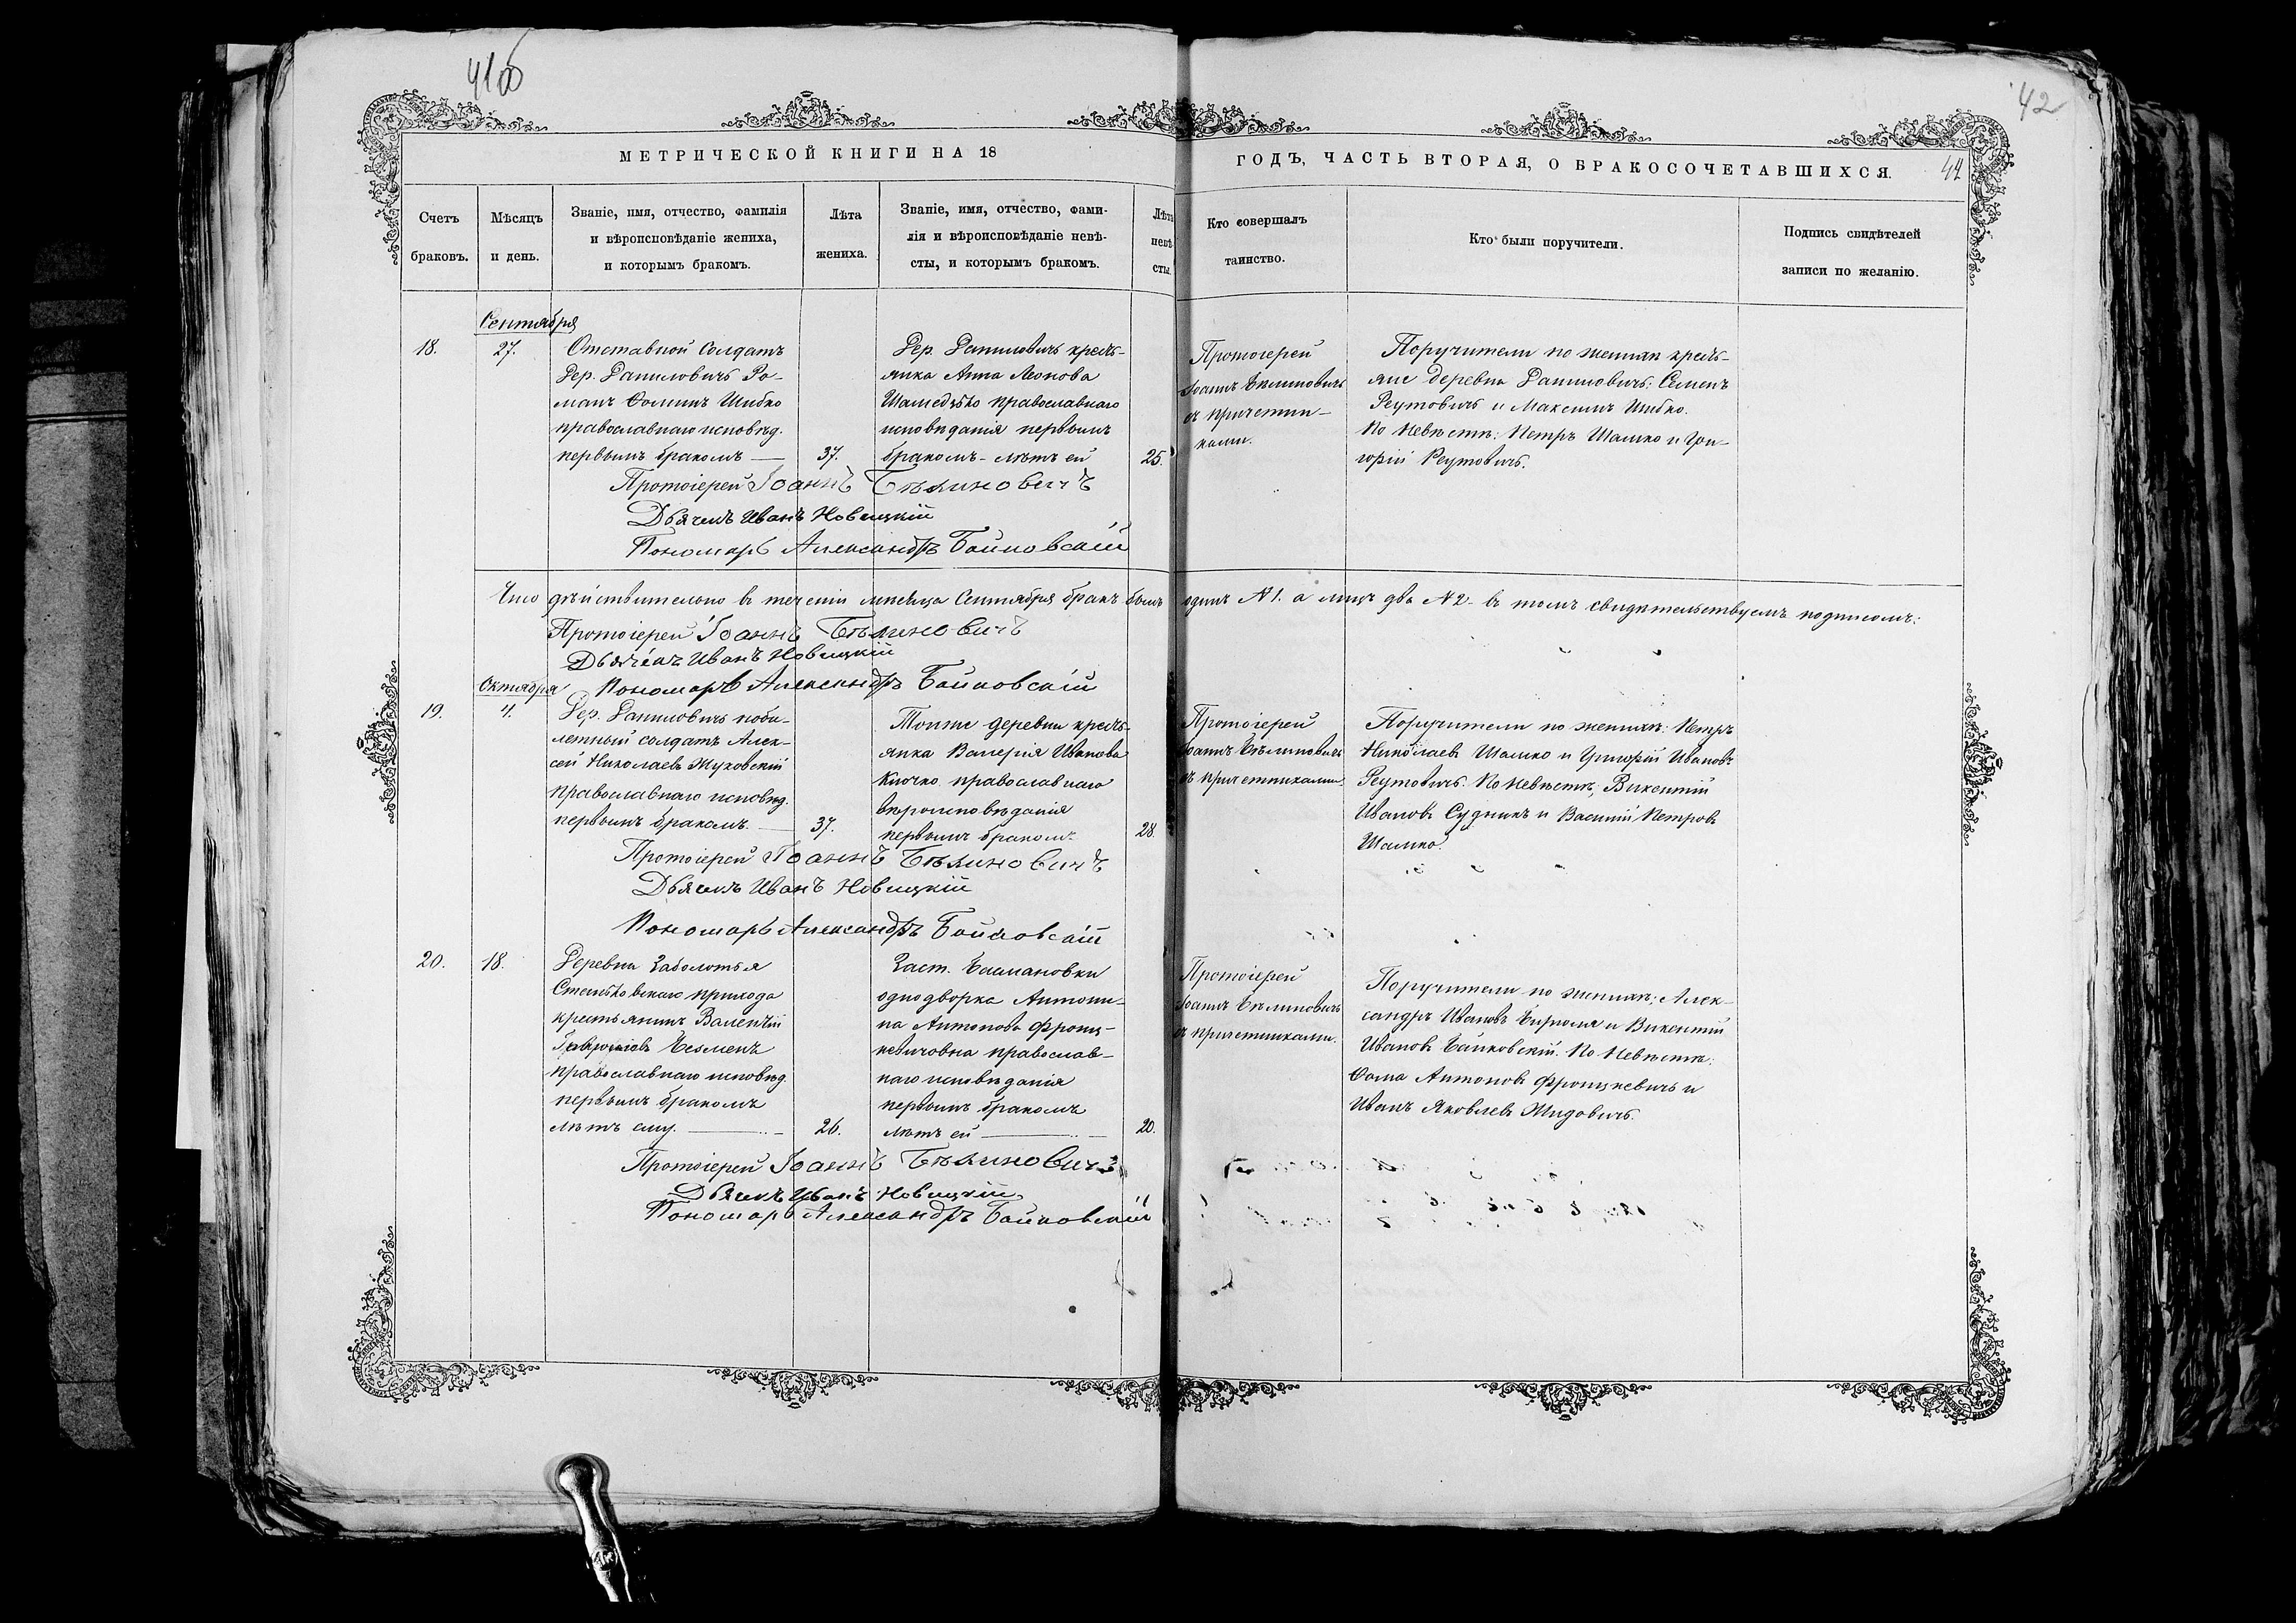 41об
42
МЕТРИЧЕСКОЙ КНИГИ НА 18
ГОДЪ, ЧАСТЬ ВТОРАЯ, О БРАКОСОЧЕТАВШИХСЯ.
Счетъ
браковъ.
Мѣсяцъ
и день.
Званіе, имя, отчество, фамилія
и вѣроисповѣданіе жениха,
и которымъ бракомъ.
Лѣта
жениха.
Званіе, имя, отчество, фами-
лія и вѣроисповѣданіе невѣ-
сты, и которымъ бракомъ.
Лѣта
невѣ-
сты.
Кто совершалъ
таинство.
Кто были поручители.
Подпись свидѣтелей
записи по желанію.
Сентября
18.
27.
Отставной Солдатъ
Дер. Даниловичъ Ро-
манъ Ѳоминъ Шибко
православнаго исповѣд.
первымъ бракомъ —
37.
Дер. Даниловичъ кресть-
янка Анна Леонова
православнаго
исповѣданія первымъ
бракомъ - лѣтъ ей
25.
Протоіерей
Іоаннъ Бѣлиновичъ
съ причетни-
ками.
Поручители по женихѣ кресть-
яне деревни Даниловичъ: Семенъ
Реутовичъ и Максимъ Шибко.
По невѣстѣ: Петръ Шамко и Гри-
горій Реутовичъ.
Протоіерей Іоаннъ Бѣлиновичъ
Дьячекъ Иванъ Новицкій
Пономарь Александръ Байковскій
Что дѣйствительно въ теченіи мѣсяца Сентября бракъ былъ одинъ №1. а лицъ два №2 - въ томъ свидѣтельствуемъ подписомъ:
Протоіерей Іоаннъ Бѣлиновичъ
Дьячекъ Иванъ Новицкій
Пономарь Александръ Байковскій
Октября
19.
4.
Дер. Даниловичъ
солдатъ Алек-
сей Николаевъ Жуковскій
православнаго исповѣд.
первымъ бракомъ. —
37.
Тойже деревни кресть-
янка Валерія Иванова
Ключко православнаго
вѣроисповѣданія
первымъ бракомъ
28.
Протоіерей
Іоаннъ Бѣлиновичъ
съ причетниками.
Поручители по женихѣ: Петръ
Николаевъ Шамко и Григорій Ивановъ
Реутовичъ. По невѣстѣ, Викентій
Ивановъ Судникъ и Василій Петровъ
Шамко.
Протоіерей Іоаннъ Бѣлиновичъ
Дьячекъ Иванъ Новицкій
Пономарь Александръ Байковскій
20.
18.
Деревни Заболотья
прихода
крестьянинъ Валентій
православнаго исповѣд.
первымъ бракомъ
лѣтъ ему. —
26.
Заст. Басмановки
однодворка Антони-
на Антонова Фронц-
кевичовна православ-
наго исповѣданія
первымъ бракомъ
лѣтъ ей —
20.
Протоіерей
Іоаннъ Бѣлиновичъ
съ причетниками.
Поручители по женихѣ: Алек-
сандръ Ивановъ и Викентій
Ивановъ Байковскій. По невѣстѣ:
Ѳома Антоновъ Фронцкевичъ и
Иванъ Яковлевъ Жидовичъ.
Протоіерей Іоаннъ Бѣлиновичъ
Дьячекъ Иванъ Новицкій
Пономарь Александръ Байковскій